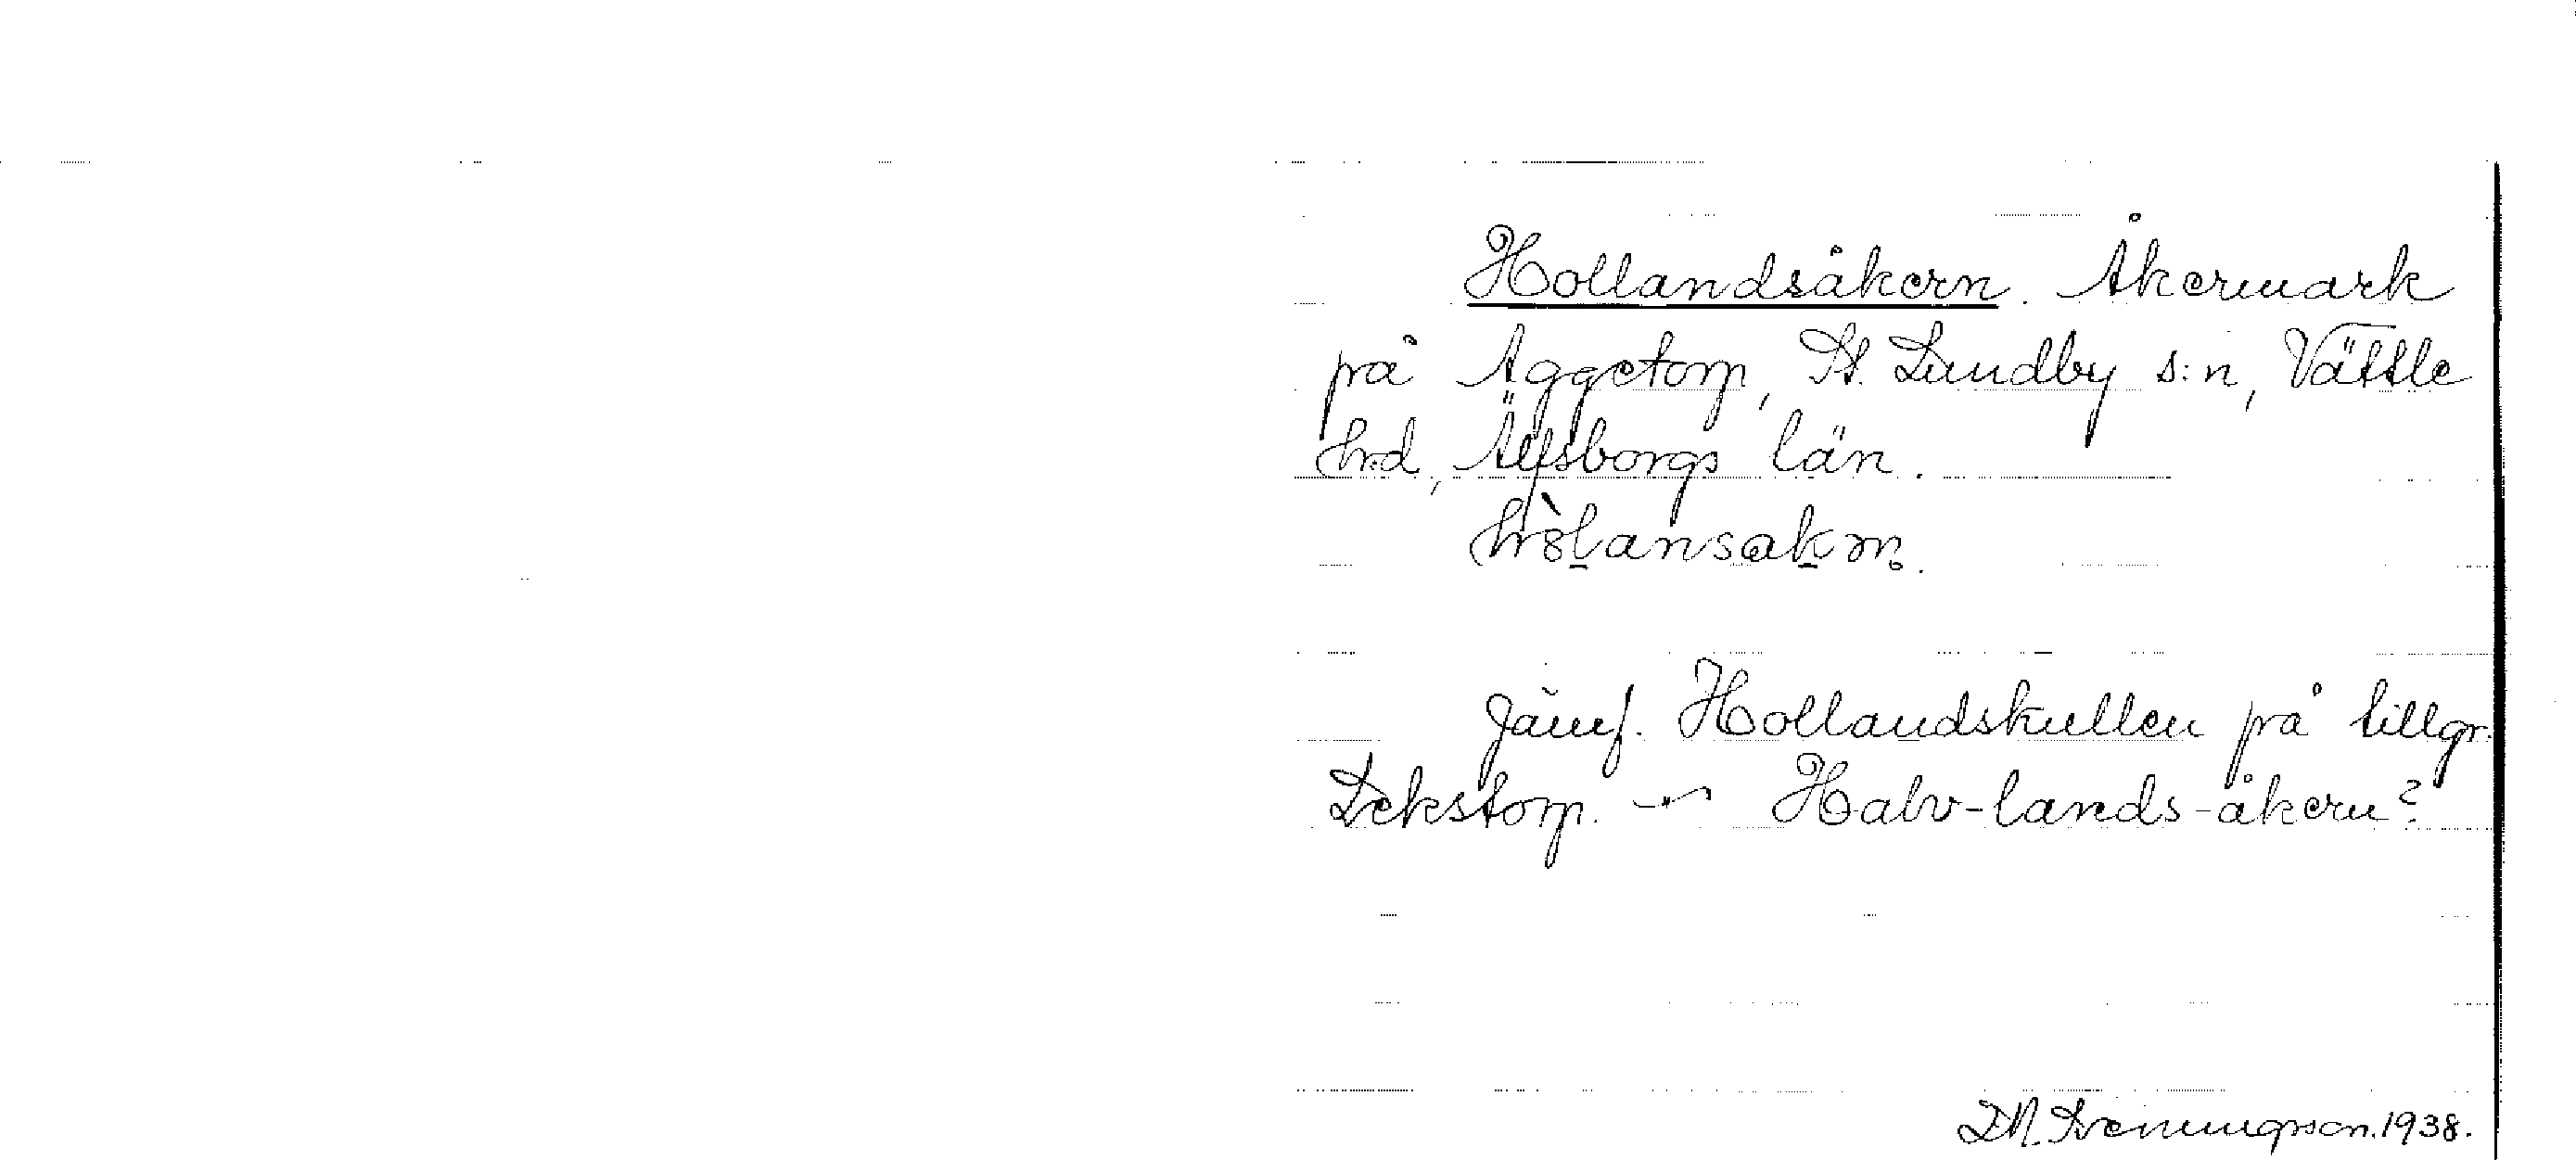 Hollandsåkern. Åkermark
på Aggetorp, St. Lundby s:n, Vättle
hrd, Älfsborgs län.
Jämf. Hollandskullen på tillgr.
Lekstorp. — Halv-lands-åkern?
D.N. Svenningsson. 1938.